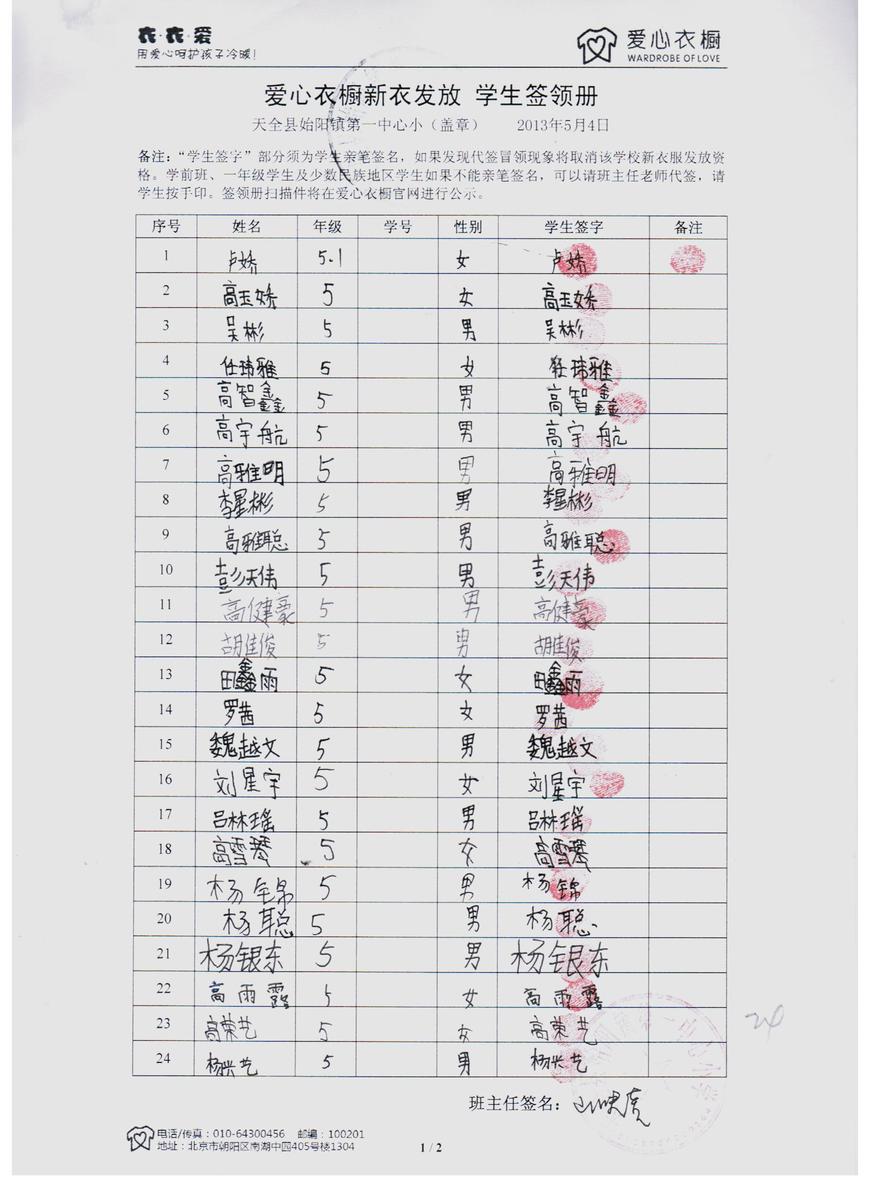 衣·衣·爱
用爱心呵护孩子冷暖！
爱心衣橱
WARDROBE OF LOVE
爱心衣橱新衣发放 学生签领册
天全县始阳镇第一中心小（盖章） 2013年5月4日
备注：“学生签字”部分须为学生亲笔签名，如果发现代签冒领现象将取消该学校新衣服发放资
格。学前班、一年级学生及少数民族地区学生如果不能亲笔签名，可以请班主任老师代签，请
学生按手印。签领册扫描件将在爱心衣橱官网进行公示。
序号 姓名 年级 学号 性别 学生签字 备注
1 卢娇 5.1 女 卢娇
2 高玉娇 5 女 高玉娇
3 吴彬 5 男 吴彬
4 任玮雅 5 女 任玮雅
5 高智鑫 5 男 高智鑫
6 高宇航 5 男 高宇航
7 高雅明 5 男 高雅明
8 李星彬 5 男 李星彬
9 高雅聪 5 男 高雅聪
10 彭天伟 5 男 彭天伟
11 高健豪 5 男 高健豪
12 胡佳俊 5 男 胡佳俊
13 田鑫雨 5 女 田鑫雨
14 罗茜 5 女 罗茜
15 魏越文 5 男 魏越文
16 刘星宇 5 女 刘星宇
17 吕林瑶 5 男 吕林瑶
18 高雪琴 5 女 高雪琴
19 杨锦 5 男 杨锦
20 杨聪 5 男 杨聪
21 杨银东 5 男 杨银东
22 高雨露 5 女 高雨露
23 高荣艺 5 女 高荣艺
24 杨兴艺 5 男 杨兴艺
24
班主任签名：
电话/传真：010-64300456 邮编：100201
地址：北京市朝阳区南湖中园405号楼1304
1 / 2